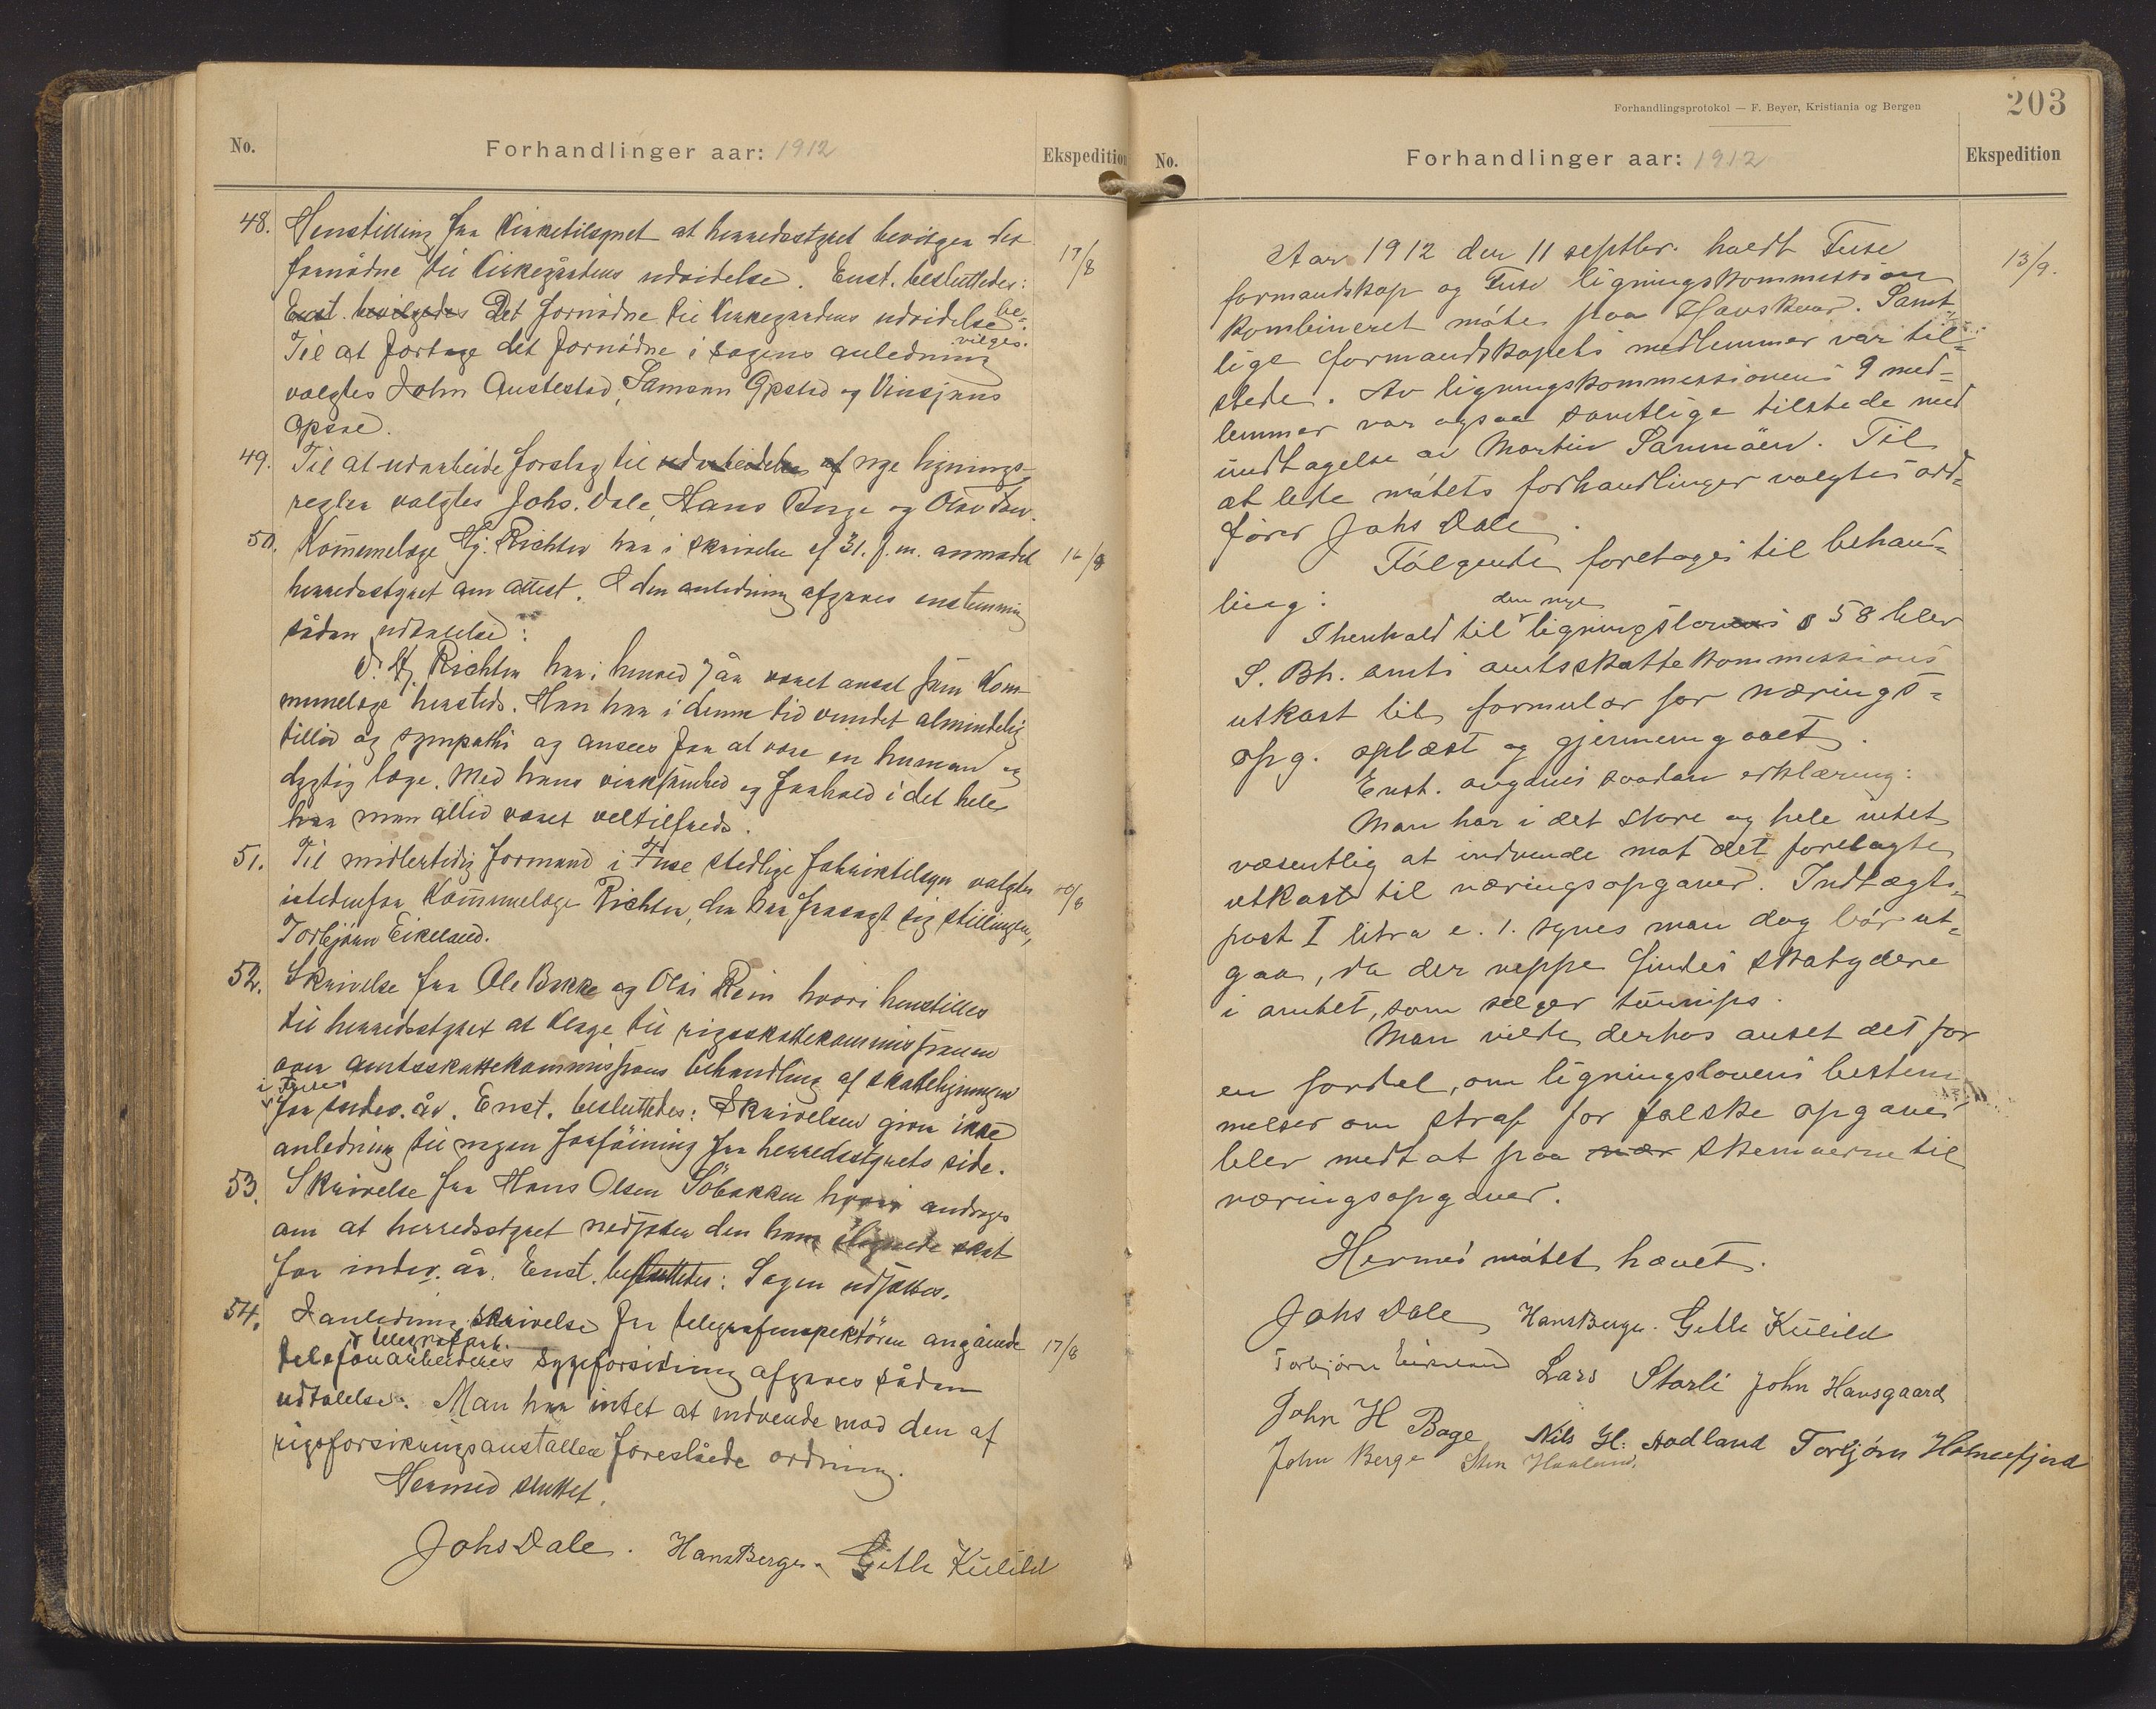 No.
Forhandlinger aar: 1912
Ekspedition
48. Henstilling fra Kirketilsynet at herredsstyret bevilger det
17/8
fornødne til Kirkegårdens udvidelse. Enst. besluttedes:
Enst. bevilgedes Det fornødne til Kirkegaardens udvidelse be-
vilges.
Til at fortage det fornødne i sagens anledning
valgtes John Austestad, Samson Opsted og Vinsjans
Opsae.
49. Til at udarbeide forslag til udarbeidelse af nye lignings-
regler valgtes Johs. Dale, Hans Berge og Olav
50. Kommunelæge Hj. Richter har i skrivelse af 31. f. m. anmodet
herredsstyret om attest. I den anledning afgaves enstemmig
sådan udtalelse:
Hj. Richter har i henved 7 år været ansat som Kom-
munelæge hersteds. Han har i denne tid vundet almindelig
tillid og sympathi og ansees for at være en human og
dygtig læge. Med hans virksomhed og forhold i det hele
har man altid været veltilfreds.
51. Til midlertidig formand i Fuse stedlige fabriktilsyn valgtes
istedenfor Kommunelæge Richter, der har frasagt sig stillingen,
Torbjørn Eikeland.
52. Skrivelse fra Ole Bakke og Olai Rein hvori henstilles
til herredsstyret at klage til rigsskattekommissionen
over amtsskattekommissions behandling af skatteligningen
i Fuse
for indev. år. Enst. besluttedes: Skrivelsen giver ikke
anledning til nogen forføining fra herredsstyrets side.
53. Skrivelse fra Hans Olsen Söbakken hvori andrages
om at herredsstyret nedsetter den ham ilignede skat
for indev. år. Enst. besluttedes: Sagen udsættes.
54. I anledning skrivelse fra telegrafinspektören angående
17/8
& telegrafarb.
telefonarbeideres sygeforsikring afgaves sådan
udtalelse: Man har intet at indvende mod den af
rigsforsikringsanstalten foreslåede ordning.
Hermed sluttet.
Johs Dale. Hans Berge. Gitle Kulild
Forhandlingsprotokol — F. Beyer, Kristiania og Bergen
203
No.
Forhandlinger aar: 1912
Ekspedition
Aar 1912 den 11 septbr. holdt Fuse
13/9.
formandskap og Fuse ligningskommission
kombineret møte paa Havskaar. Samt-
lige formandskapets medlemmer var til-
stede. Av ligningskommissionens 9 med-
lemmer var ogsaa samtlige tilstede med
undtagelse av Martin Sammöen. Til
at lede møtets forhandlinger valgtes ord-
fører Johs Dale.
Følgende foretoges til behand-
ling:
den nye
I henhold til ligningslovens § 58 blev
S. Bh. amts amtsskattekommissions
utkast til formular for nærings-
opg. oplæst og gjennemgaaet.
Enst. avgaves saadan erklæring:
Man har i det store og hele intet
væsentlig at indvende mot det forelagte
utkast til næringsopgaver. Indtægts-
post I litra e. 1. synes man dog bør ut-
gaa, da der neppe findes skatydere
i amtet, som selger turnips.
Man vilde derhos anset det for
en fordel, om ligningslovens bestem-
melser om straf for falske opgaver
blev medtat paa nær skemaerne til
næringsopgaver.
Hermed møtet hævet.
Johs Dale Hans Berge. Gitle Kulild
Torbjørn Eikeland Lars Storli John Havsgaard
John H Bage Nils H: Aadland Torbjørn Holmefjord
John Berge Sten Haaland.